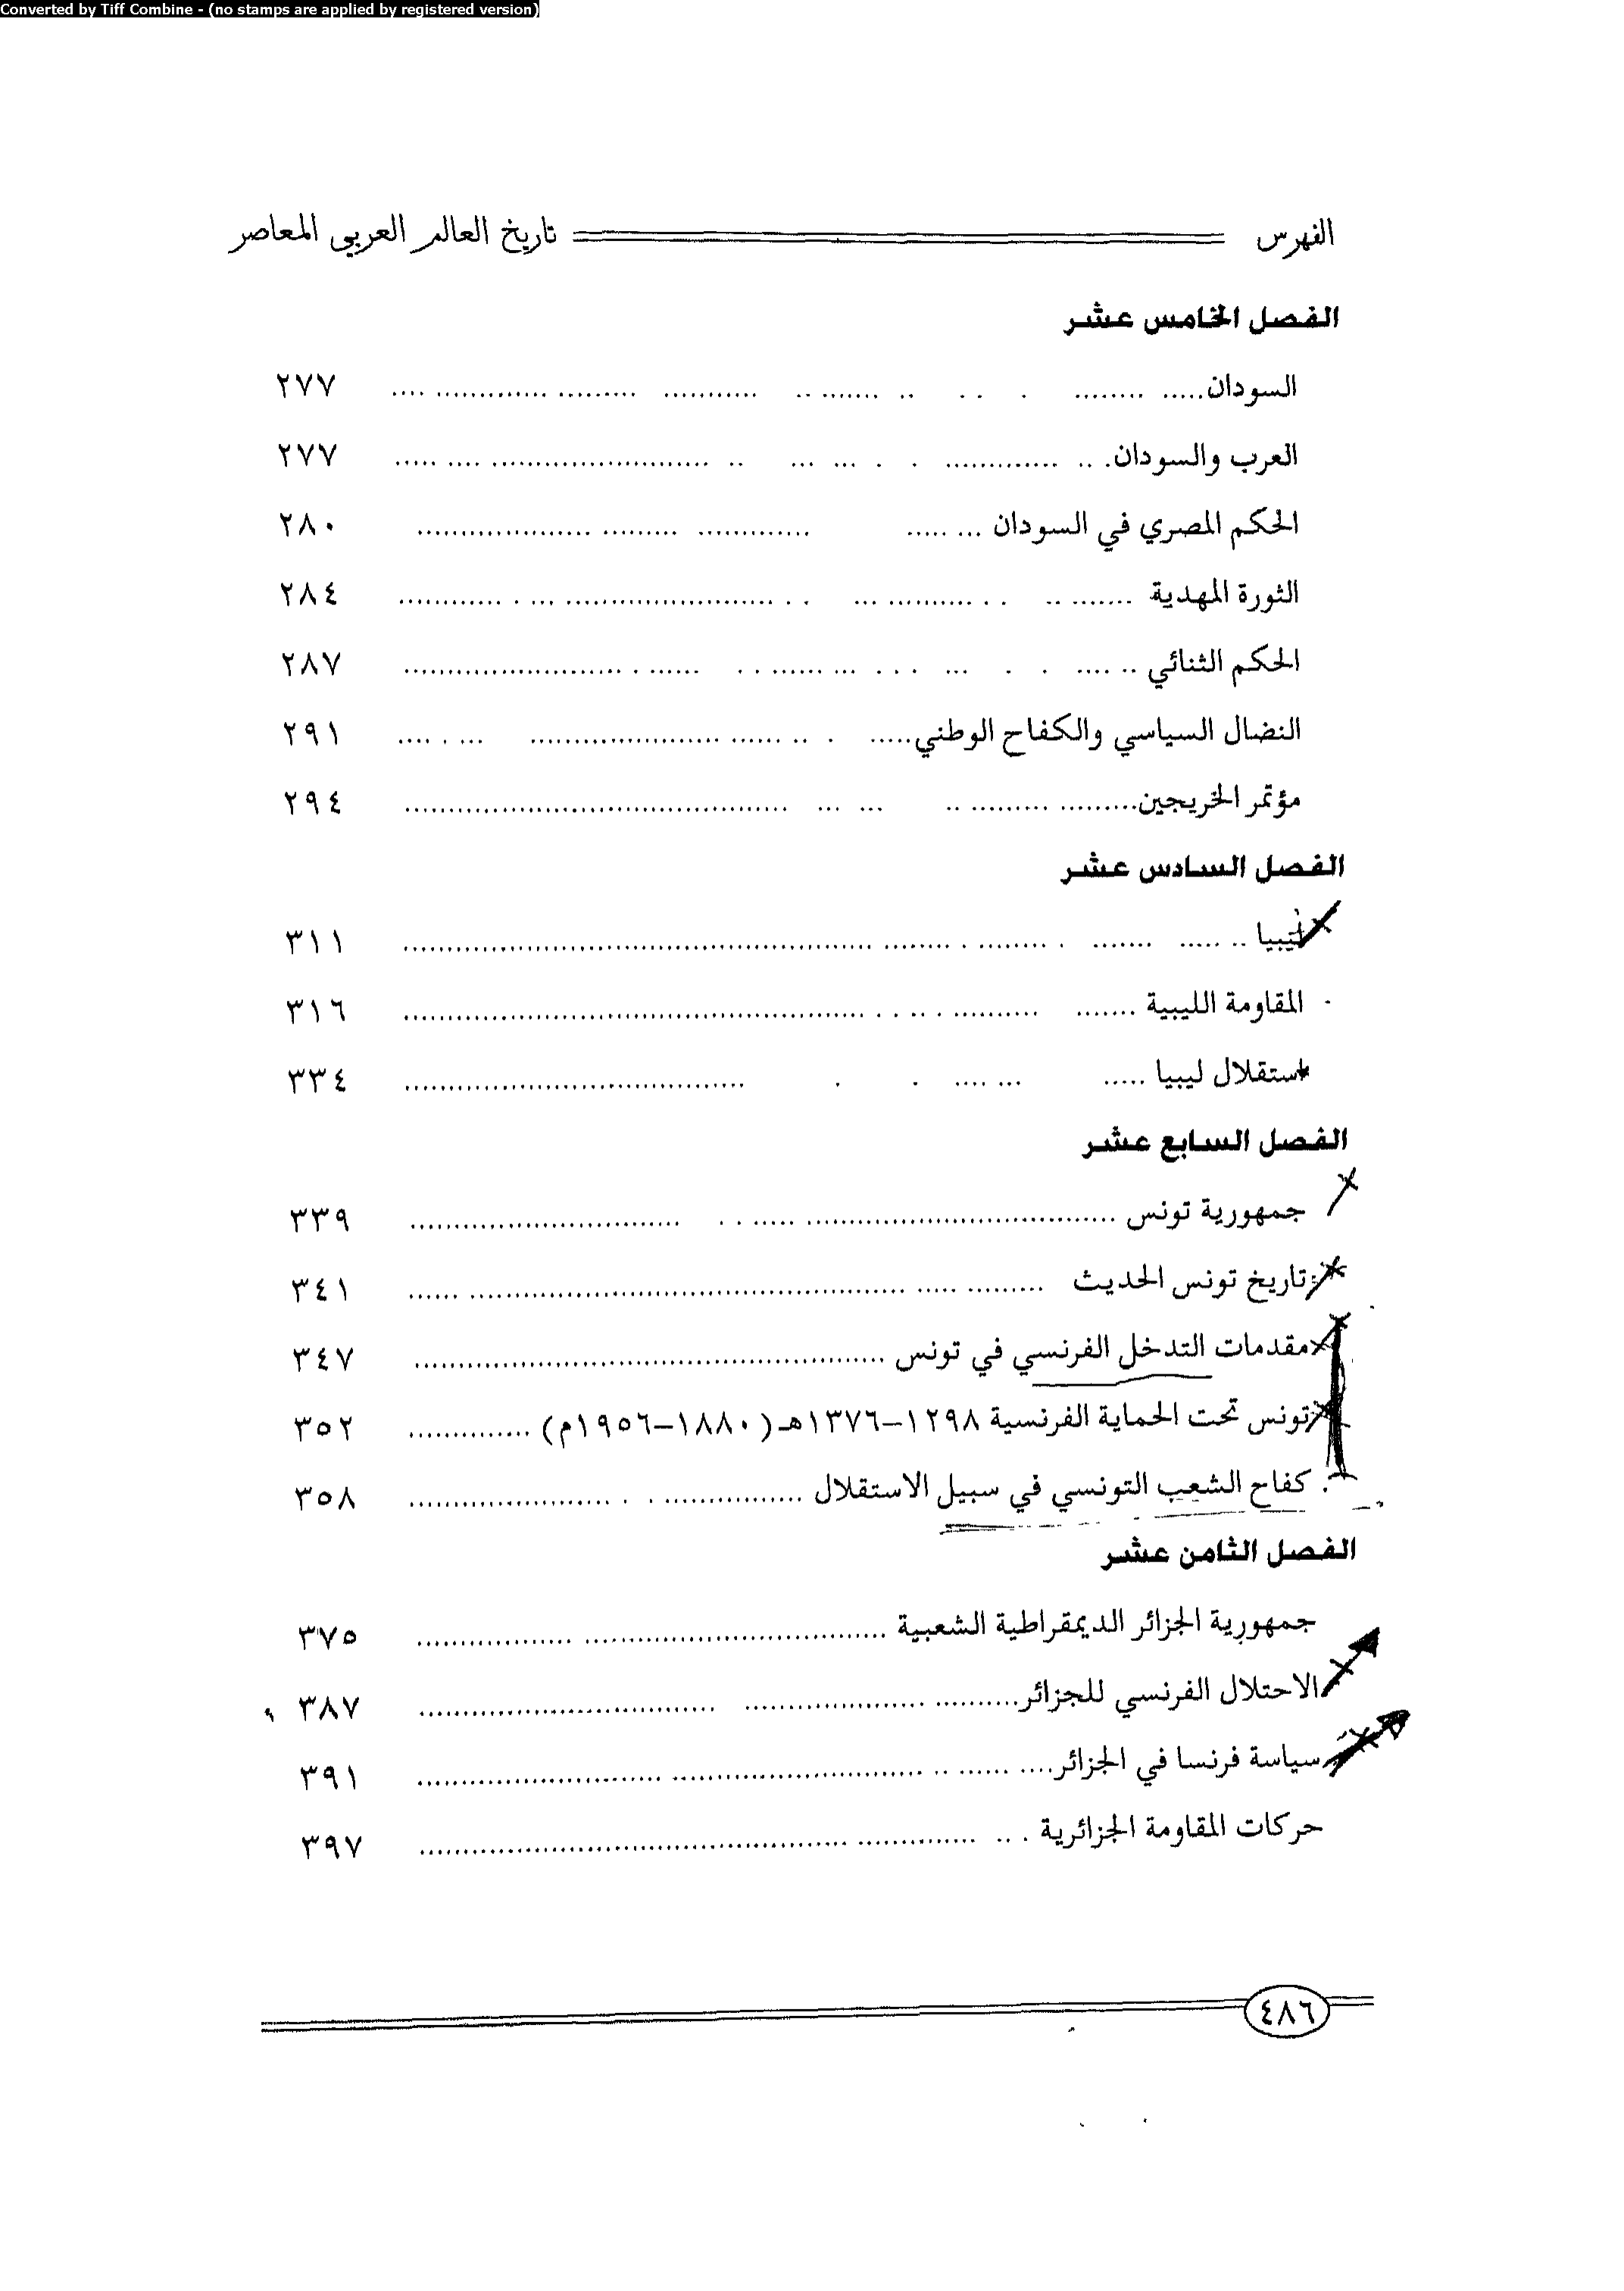 Converted by Tiff Combine - (no stamps are applied by registered version)
الفهرس تاريخ العالم العربي المعاصر
الفصل الخامس عشر
السودان ٢٧٧
العرب والسودان ٢٧٧
الحكم المصري في السودان ٢٨٠
الثورة المهدية ٢٨٤
الحكم الثنائي ٢٨٧
النضال السياسي والكفاح الوطني ٢٩١
مؤتمر الخريجين ٢٩٤
الفصل السادس عشر
ليبيا ٣١١
المقاومة الليبية ٣١٦
استقلال ليبيا ٣٣٤
الفصل السابع عشر
جمهورية تونس ٣٣٩
تاريخ تونس الحديث ٣٤١
مقدمات التدخل الفرنسي في تونس ٣٤٧
تونس تحت الحماية الفرنسية ١٢٩٨-١٣٧٦هـ (١٨٨٠-١٩٥٦م) ٣٥٢
كفاح الشعب التونسي في سبيل الاستقلال ٣٥٨
الفصل الثامن عشر
جمهورية الجزائر الديمقراطية الشعبية ٣٧٥
الاحتلال الفرنسي للجزائر ٣٨٧
سياسة فرنسا في الجزائر ٣٩١
حركات المقاومة الجزائرية ٣٩٧
٤٨٦